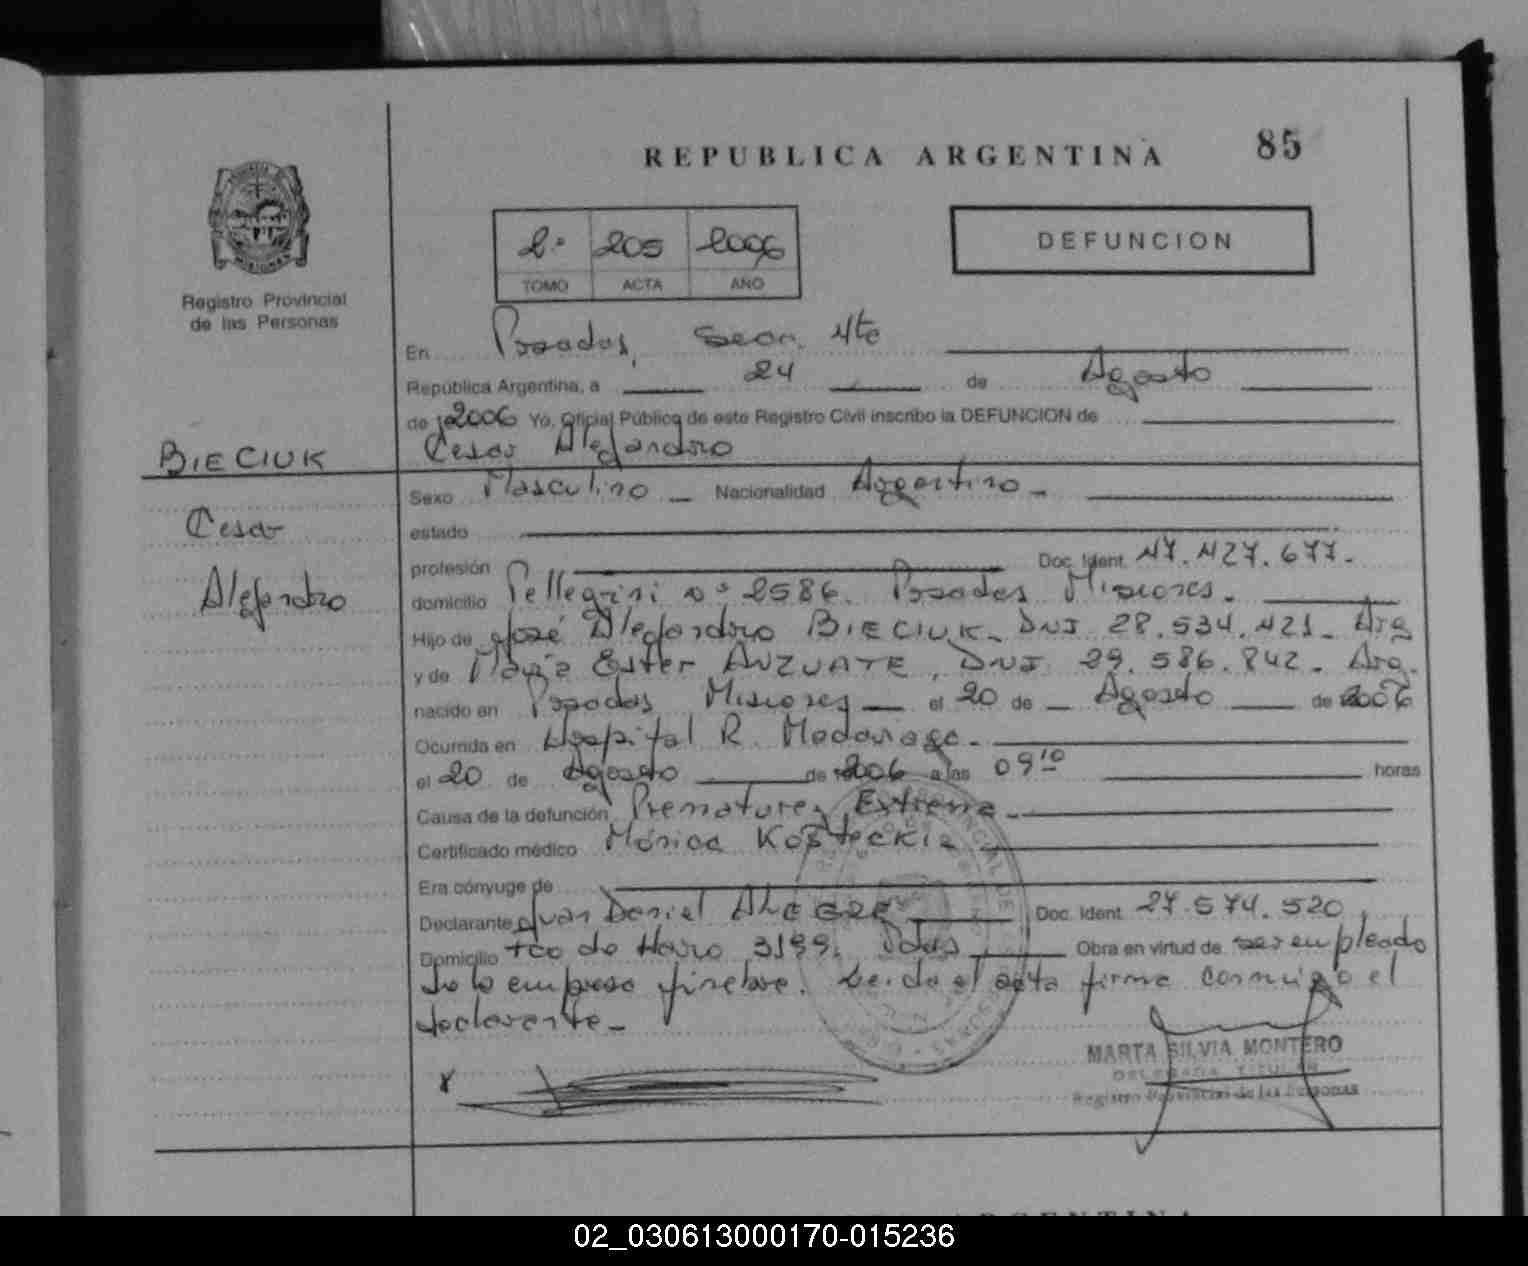 85
REPUBLICA ARGENTINA
2º 205 2006
TOMO ACTA AÑO
DEFUNCION
MISIONES
Registro Provincial
de las Personas
En Posadas, Secc. 4ta
República Argentina, a 24 de Agosto
de 2006 Yo, Oficial Público de este Registro Civil inscribo la DEFUNCION de
BIECIUK
Cesar Alejandro
Cesar
Alejandro
Sexo Masculino - Nacionalidad Argentino -
estado
profesión Doc. Ident. 47.427.677.
domicilio Pellegrini nº 2586. Posadas Misiones.
Hijo de José Alejandro BIECIUK - DNI 28.534.421 - Arg
y de María Ester ANZUATE, DNI 29.586.842 - Arg.
nacido en Posadas Misiones el 20 de Agosto de 2006
Ocurrida en Hospital R. Madariaga.
el 20 de Agosto de 2006 a las 09¹⁰ horas
Causa de la defunción Prematurez Extrema
Certificado médico Mónica Kosteckia
Era cónyuge de
Declarante Juan Daniel ALEGRE Doc. Ident. 27.574.520,
Domicilio Fco de Haro 3199. Pdas Obra en virtud de ser empleado
de la empresa fúnebre. Leida el acta firma conmigo el
declarante -
MARTA SILVIA MONTERO
DELEGADA TITULAR
Registro Provincial de las Personas
02_030613000170-015236